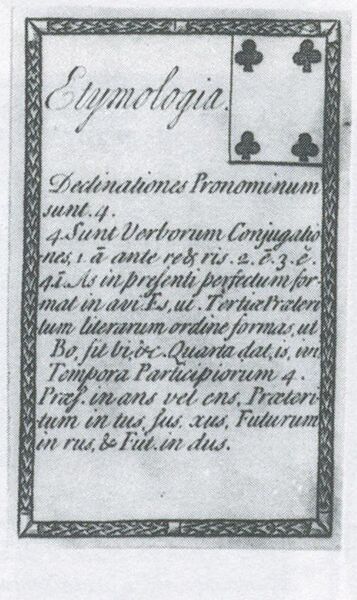 Etymologia.
Declinationes Pronominum
sunt. 4.
4 Sunt Verborum Conjugatio
nes, 1 ā ante re & ris. 2. ē. 3. ĕ.
4 ī. As in præsenti perfectum for-
mat in avi. Es, ui. Tertia Præteri-
tum literarum ordine formas, ut
Bo, fit bi, bc. Quarta dat, is, ivi
Tempora Participiorum 4.
Præs. in ans vel ens, Præteri-
tum in tus, sus, xus, Futurum
in rus, & Fut. in dus.